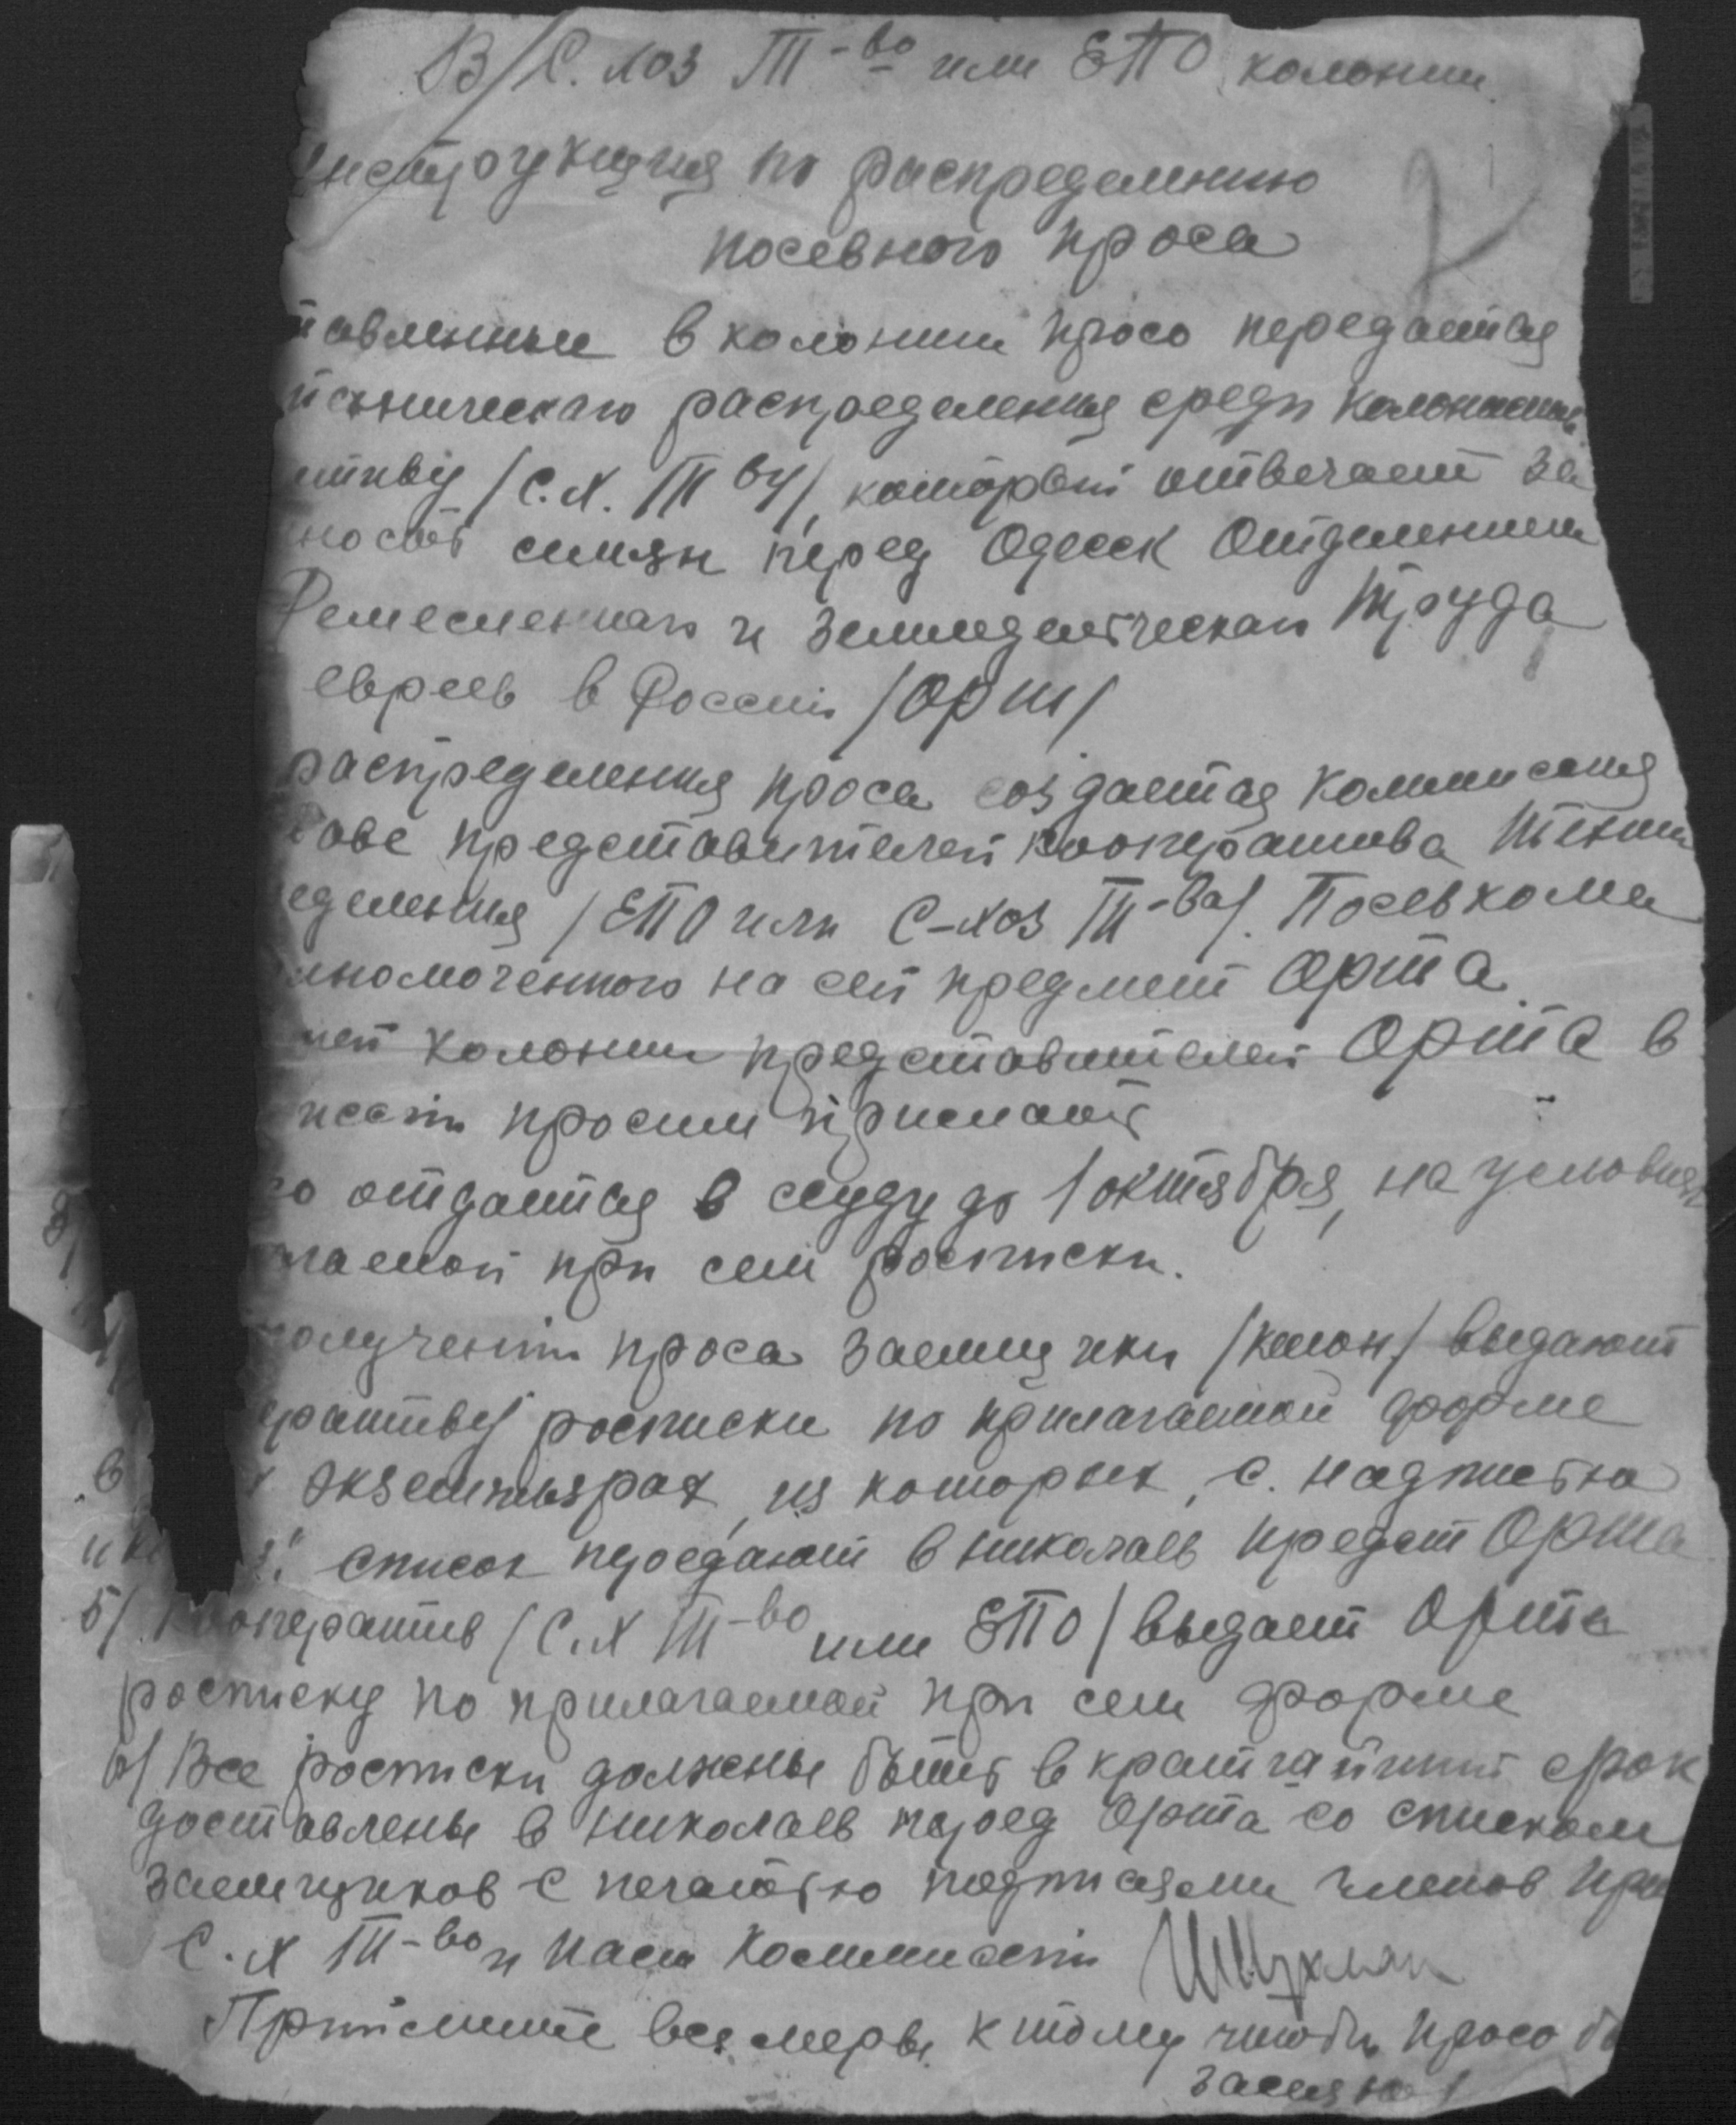 В/С. хоз Т-во или ЕПО колонии
Инструкция по распределению
посевного проса
тавленные в колонии просо передается
йскнического распределения среди колонистов
ативу /С.Х. Т-ву/, который отвечает за
ность семян перед Одесск Отделением
Ремесленнаго и Земледельческаго Труда
евреев в России /Орт/
распределения проса создается коммиссия
таве представителей кооператива
еделения /ЕПО или С-хоз Т-ва/. Посевкома
лномоченного на сей предмет Орта.
ней колонии представителей Орта в
иссии просим прислать
со отдается в ссуду до 1 октября, на условиях
гаемой при сем росписки.
получении проса заемщики /колон./ выдают
еративу росписки по прилагаемой форме
х экземплярах, из которых, с. надписью
список передают в Николаев предст Орта
5/ Кооператив /С.Х Т-во или ЕПО/ выдает Орта
росписку по прилагаемой при сем форме
6/ Все росписки должены быть в кратчайший срок
доставлены в Николаев перед Орта со списком
заемщиков с печатью подписями членов Пра
С.Х Т-во и Коммиссии
Примите все меры к тому чтобы просо бы
засеяно!